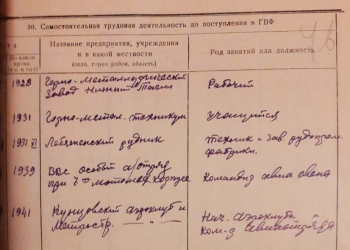 30. Самостоятельная трудовая деятельность до поступления в ГВФ
Название предприятия, учреждения
и в какой местности
(село, город, район, область)
Род занятий или должность
По какое
время
1928 Горно-Металлургический Рабочий
завод Нижний Тагил
1931 Горно-метал. техникум Учащийся
1931 VI Лебяженский рудник Техник и зав рудообог.
фабрики.
1939 ВВС особый а/отряд Командир авиа звена
при 7 мотомех. корпусе
1941 Кунцовский Аэроклуб и Нач. Аэроклуба и
ком-р Авиаотряда